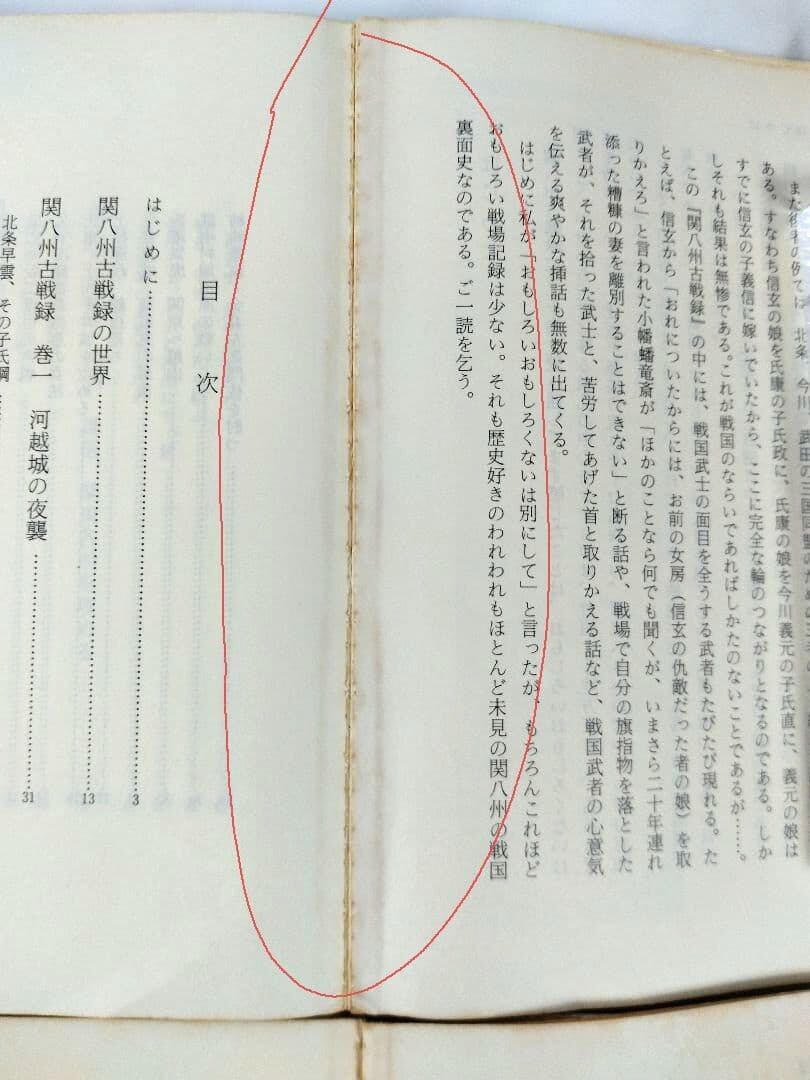 また後者の例では、北条、今川、武田の三国同盟のための三
ある。すなわち信玄の娘を氏康の子氏政に、氏康の娘を今川義元の子氏直に、義元の娘は
すでに信玄の子義信に嫁いでいたから、ここに完全な輪のつながりとなるのである。しか
しそれも結果は無惨である。これが戦国のならいであればしかたのないことであるが……。
この『関八州古戦録』の中には、戦国武士の面目を全うする武者もたびたび現れる。た
とえば、信玄から「おれについたからには、お前の女房（信玄の仇敵だった者の娘）を取
りかえろ」と言われた小幡蟠竜斎が「ほかのことなら何でも聞くが、いまさら二十年連れ
添った糟糠の妻を離別することはできない」と断る話や、戦場で自分の旗指物を落とした
武者が、それを拾った武士と、苦労してあげた首と取りかえる話など、戦国武者の心意気
を伝える爽やかな挿話も無数に出てくる。
はじめに私が「おもしろいおもしろくないは別にして」と言ったが、もちろんこれほど
おもしろい戦場記録は少ない。それも歴史好きのわれわれもほとんど未見の関八州の戦国
裏面史なのである。ご一読を乞う。
目次
はじめに……………………3
関八州古戦録の世界……………………13
関八州古戦録 巻一 河越城の夜襲……………………31
北条早雲、その子氏綱……